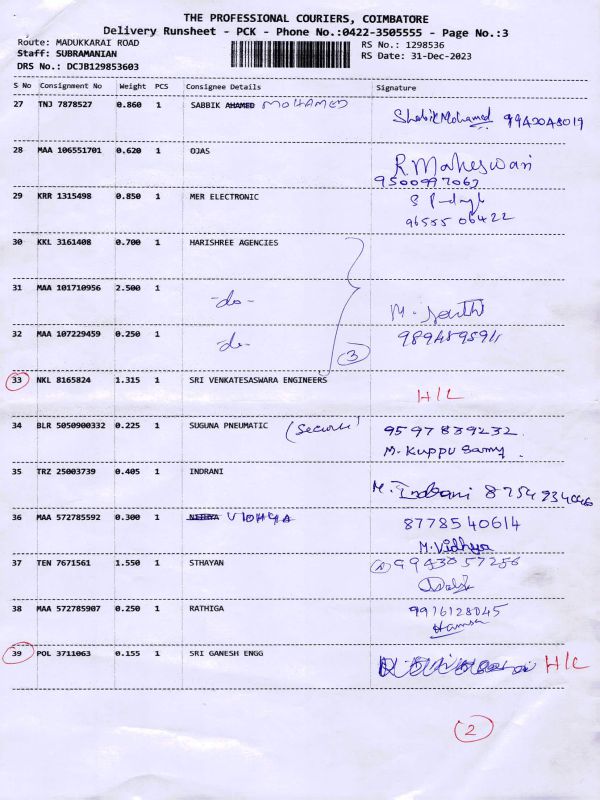 THE PROFESSIONAL COURIERS, COIMBATORE
Delivery Runsheet - PCK - Phone No.:0422-3505555 - Page No.:3
Route: MADUKKARAI ROAD RS No.: 1298536
Staff: SUBRAMANIAN RS Date: 31-Dec-2023
DRS No.: DCJB129853603
S No Consignment No Weight PCS Consignee Details Signature
27 TNJ 7878527 0.860 1 SABBIK AHAMED MOHAMED
Shabik Mohamed 9942048019
28 MAA 106551701 0.620 1 OJAS
R Maheswari
9500997067
29 KRR 1315498 0.850 1 MER ELECTRONIC
96555 06422
30 KKL 3161408 0.700 1 HARISHREE AGENCIES
31 MAA 101710956 2.500 1 -do-
32 MAA 107229459 0.250 1 -do-
3
33 NKL 8165824 1.315 1 SRI VENKATESASWARA ENGINEERS
H/L
34 BLR 5050900332 0.225 1 SUGUNA PNEUMATIC 9597839232
M. Kuppu Samy
35 TRZ 25003739 0.405 1 INDRANI
M. Indrani
36 MAA 572785592 0.300 1 VIDHYA 8778540614
M. Vidhya
37 TEN 7671561 1.550 1 STHAYAN 9943057256
38 MAA 572785907 0.250 1 RATHIGA 9916128045
39 POL 3711063 0.155 1 SRI GANESH ENGG H/L
2